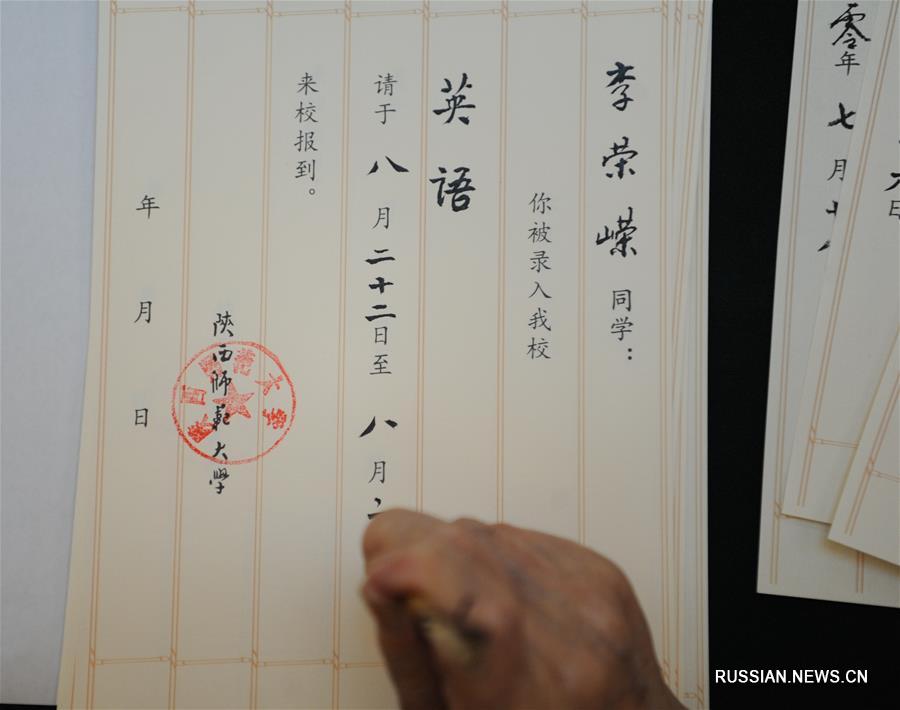 李荣嵘同学：
你被录入我校
英语
请于八月二十二日至八月二
来校报到。
陕西师范大学
年月日
零年七月
日
RUSSIAN.NEWS.CN